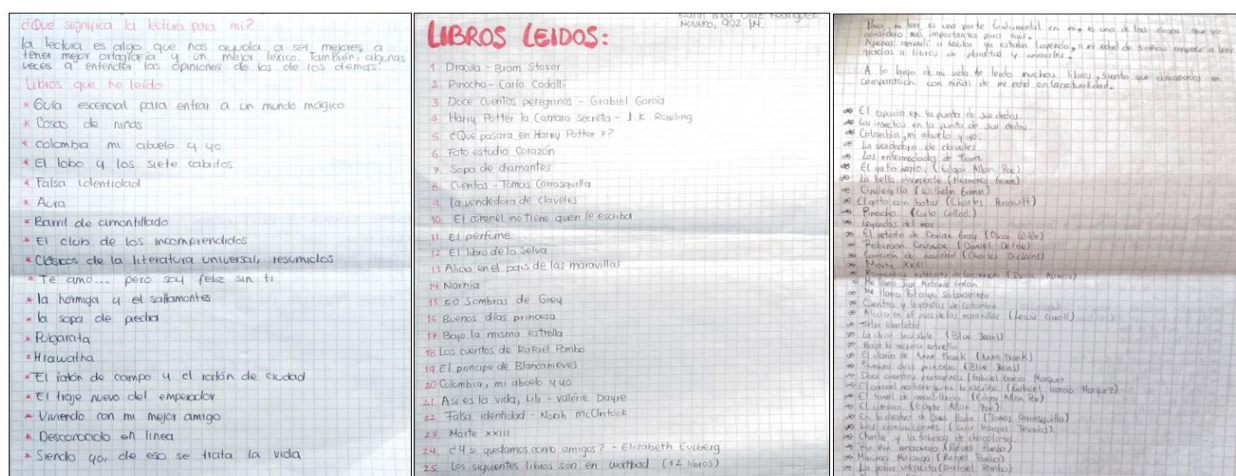 ¿Qué significa la lectura para mí?
la lectura es algo que nos ayuda a ser mejores, a
tener mejor ortografía y un mejor léxico. También, algunas
veces a entender las opiniones de los de los demás.
Libros que he leído
* Guía escencial para entrar a un mundo mágico
* Cosas de niñas
* Colombia mi abuelo y yo
* El lobo y los siete cabidos
* Falsa identidad
* Aura
* Barril de amontillado
* El club de los incomprendidos
* Clásicos de la literatura universal, resumidos
* Te amo... pero soy feliz sin ti
* la hormiga y el saltamontes
* la sopa de piedra
* Pulgarcita
* Hiawatha
* El ratón de campo y el ratón de ciudad
* El traje nuevo del emperador
* Viviendo con mi mejor amigo
* Desconocido en línea
* Siendo yo, de eso se trata la vida
Noveno, 902 JN.
LIBROS LEIDOS:
1. Dracula - Bram Stoker
2. Pinocho - Carlo Codalli
3. Doce Cuentos peregrinos - Grabiel García
4. Harry Potter la Camara Secreta - J.K. Rowling
5. ¿Qué pasara en Harry Potter 7?
6. Foto estudio Corazón
7. Sopa de diamantes
8. Cuentos - Tomas Carrasquilla
9. la vendedora de claveles
10. El coronel no tiene quien le escriba
11. El perfume
12 El libro de la Selva
13 Alicia en el pais de las maravillas
14 Narnia
15 50 Sombras de Grey
16 Buenos días princesa
17 Bajo la misma estrella
18 Los cuentos de Rafael Pombo
19 El principe de Blancanieves
20 Colombia, mi abuelo y yo
21. Asi es la vida, Lili - Valérie Dayre
22. Falsa identidad - Norah McClintock
23. Marte XXIII
24. ¿Y si quedamos como amigos? - Elizabeth Eulberg
25. Los siguientes libros son en wattpad (12 libros)
leer es una parte fundamental en mi, es una de las cosas que yo
considero más importantes para mi.
Apenas aprendí a hablar ya estaba leyendo, a mi edad de 5 años empecé a leer
gracias a libros de
A lo largo de mi vida he leído muchos libros, siento que demasiados en
comparación con niñas de mi edad en la actualidad.
* El espacio en la punta de sus dedos.
* Los insectos en la punta de sus dedos.
* Colombia, mi abuelo y yo.
* La vendedora de claveles
* Las enfermedades de
* El gato negro. (Edgar Allan Poe)
* La bella durmiente (Hermanos Grimm)
* Cinderella (Wilhelm Grimm)
* El gato con botas (Charles Perrault)
* Pinocho (Carlo Collodi.)
* Leyendas del mar
* El retrato de Dorian Gray (Oscar Wilde)
* Robinson Crusoe (Daniel Defoe)
* Canción de navidad (Charles Dickens)
* Marte XXIII
* (Isaac Asimov)
* Me llamo José Antonio Galán
* Me llamo Policarpa Salavarrieta
* Cuentos y leyendas de Colombia
* Alicia en el pais de las maravillas (Lewis Caroll)
* Falsa identidad
* La chica invisible (Blue Jeans)
* Bajo la misma estrella
* El diario de Anne Frank (Anne Frank)
* Buenos días princesa (Blue Jeans)
* Doce cuentos peregrinos (Gabriel García Márquez
* El coronel no tiene quien le escriba (Gabriel García Márquez)
* El tonel de amontillado (Edgar Allan Poe)
* El cuervo (Edgar Allan Poe)
* En la diestra de Dios Padre (Tomas Carrasquilla)
* Charlie y la fábrica de chocolates
* Rin Rin renacuajo (Rafael Pombo)
* Mirringa Mirronga (Rafael Pombo)
* La pobre viejecita (Rafael Pombo)